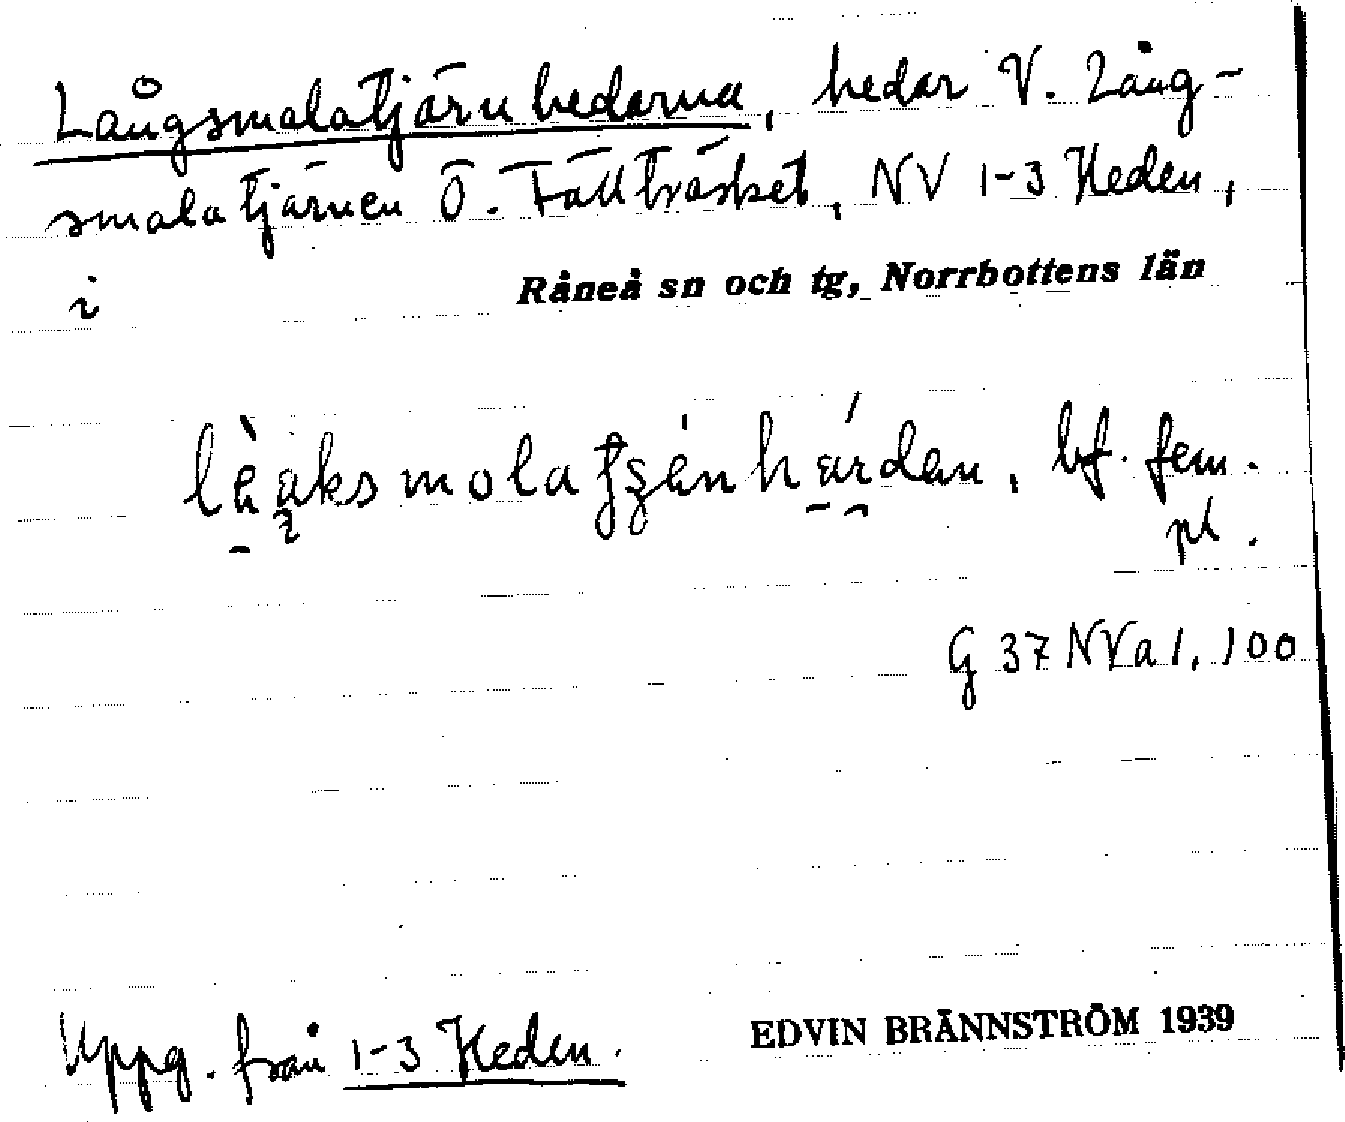 Långsmalatjärnhedarna, hedar V. Lång-
smalatjärnen Ö. Tällträsket, NV 1-3 Heden,
i Råneå sn och tg, Norrbottens län
bf. fem.
pl.
G 37 NVa 1, 100
Uppg. från 1-3 Heden.
EDVIN BRÄNNSTRÖM 1939